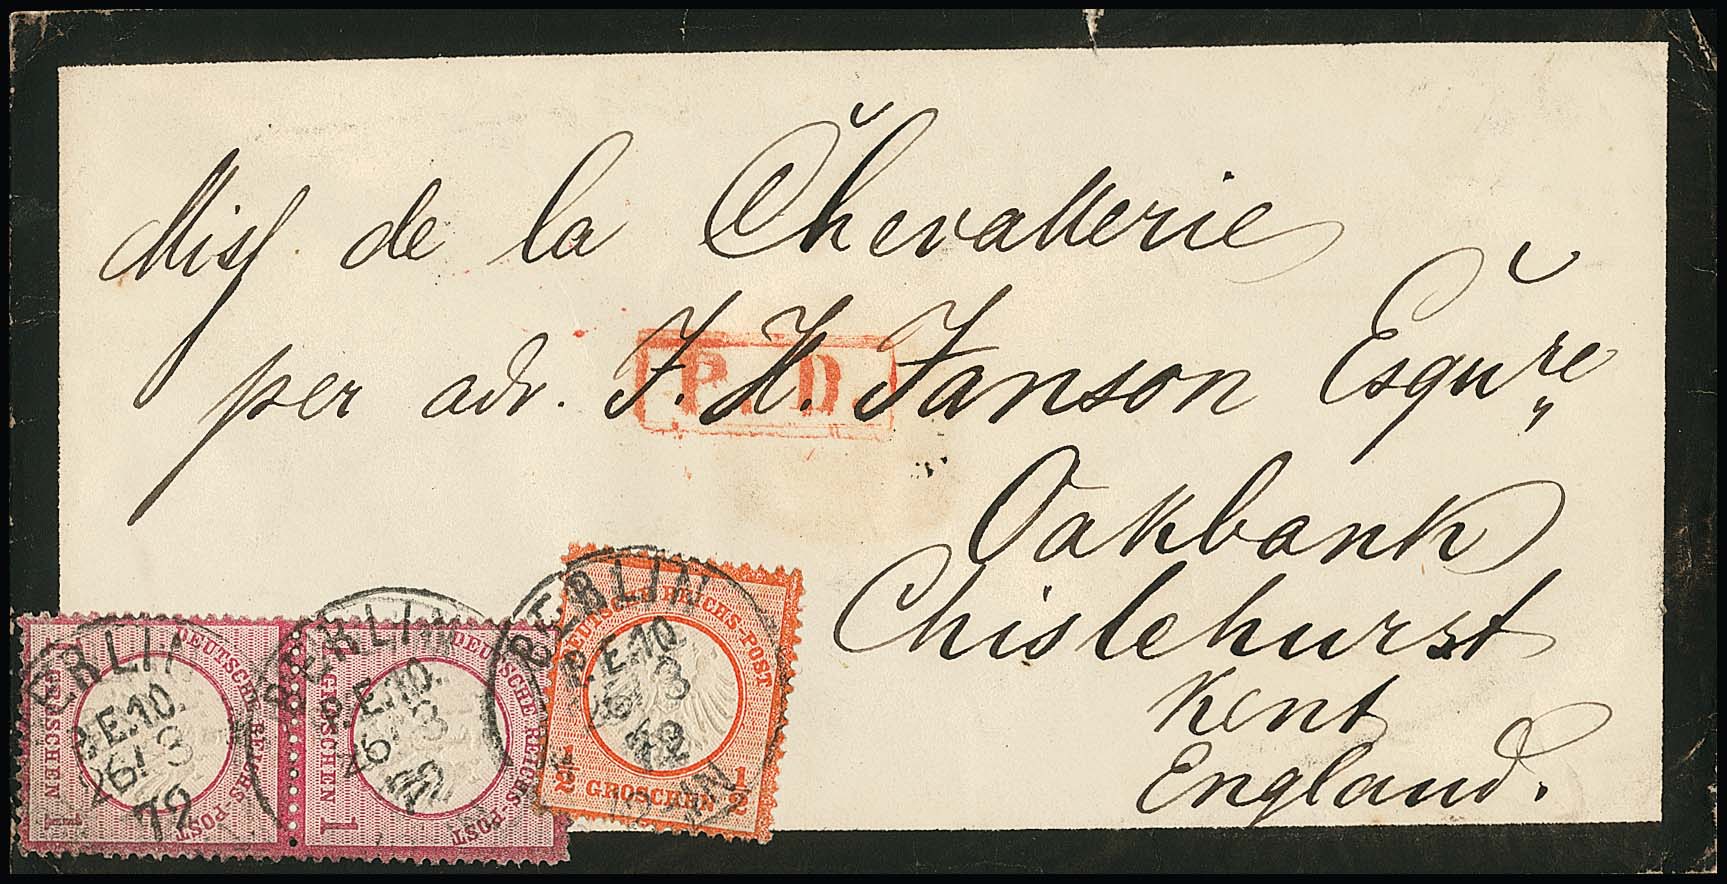 Miſs de la Chevallerie
per adr. J. H. Janson Esqure
Oakbank
Chislehurst
Kent
England.
P. D.
BERLIN
P.E.10.
26/3
72
DEUTSCHE REICHS-POST
1 GROSCHEN 1
BERLIN
P.E.10.
26/3
72
DEUTSCHE REICHS-POST
1 GROSCHEN 1
BERLIN
P.E.10.
26/3
72
DEUTSCHE REICHS-POST
1/2 GROSCHEN 1/2